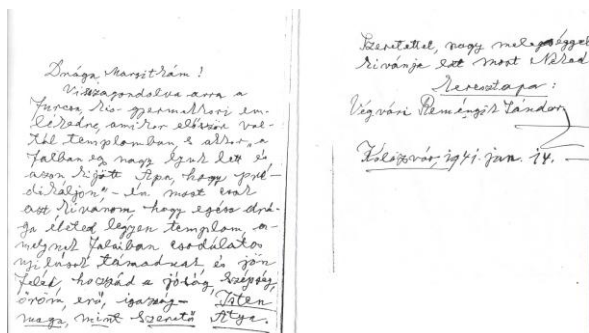 Drága Margitkám!
Visszagondolva arra a
furcsa, kis-gyermekkori em-
lékedre, amikor először vol-
tál templomban, s akkor „a
falban egy nagy lyuk lett és
azon kijött Apa, hogy pré-
dikáljon" – én most csak
azt kívánom, hogy egész drá-
ga életed légyen templom, a-
melynek falaiban csodálatos
nyílások támadnak és jön
feléd, hozzád a jóság, szépség,
öröm, erő, igazság – Isten
maga, mint szerető Atya.
Szeretettel, nagy melegséggel
kívánja ezt most Néked
keresztapa:
Végvári Reményik Sándor
Kolozsvár, 1941. jun. 14.